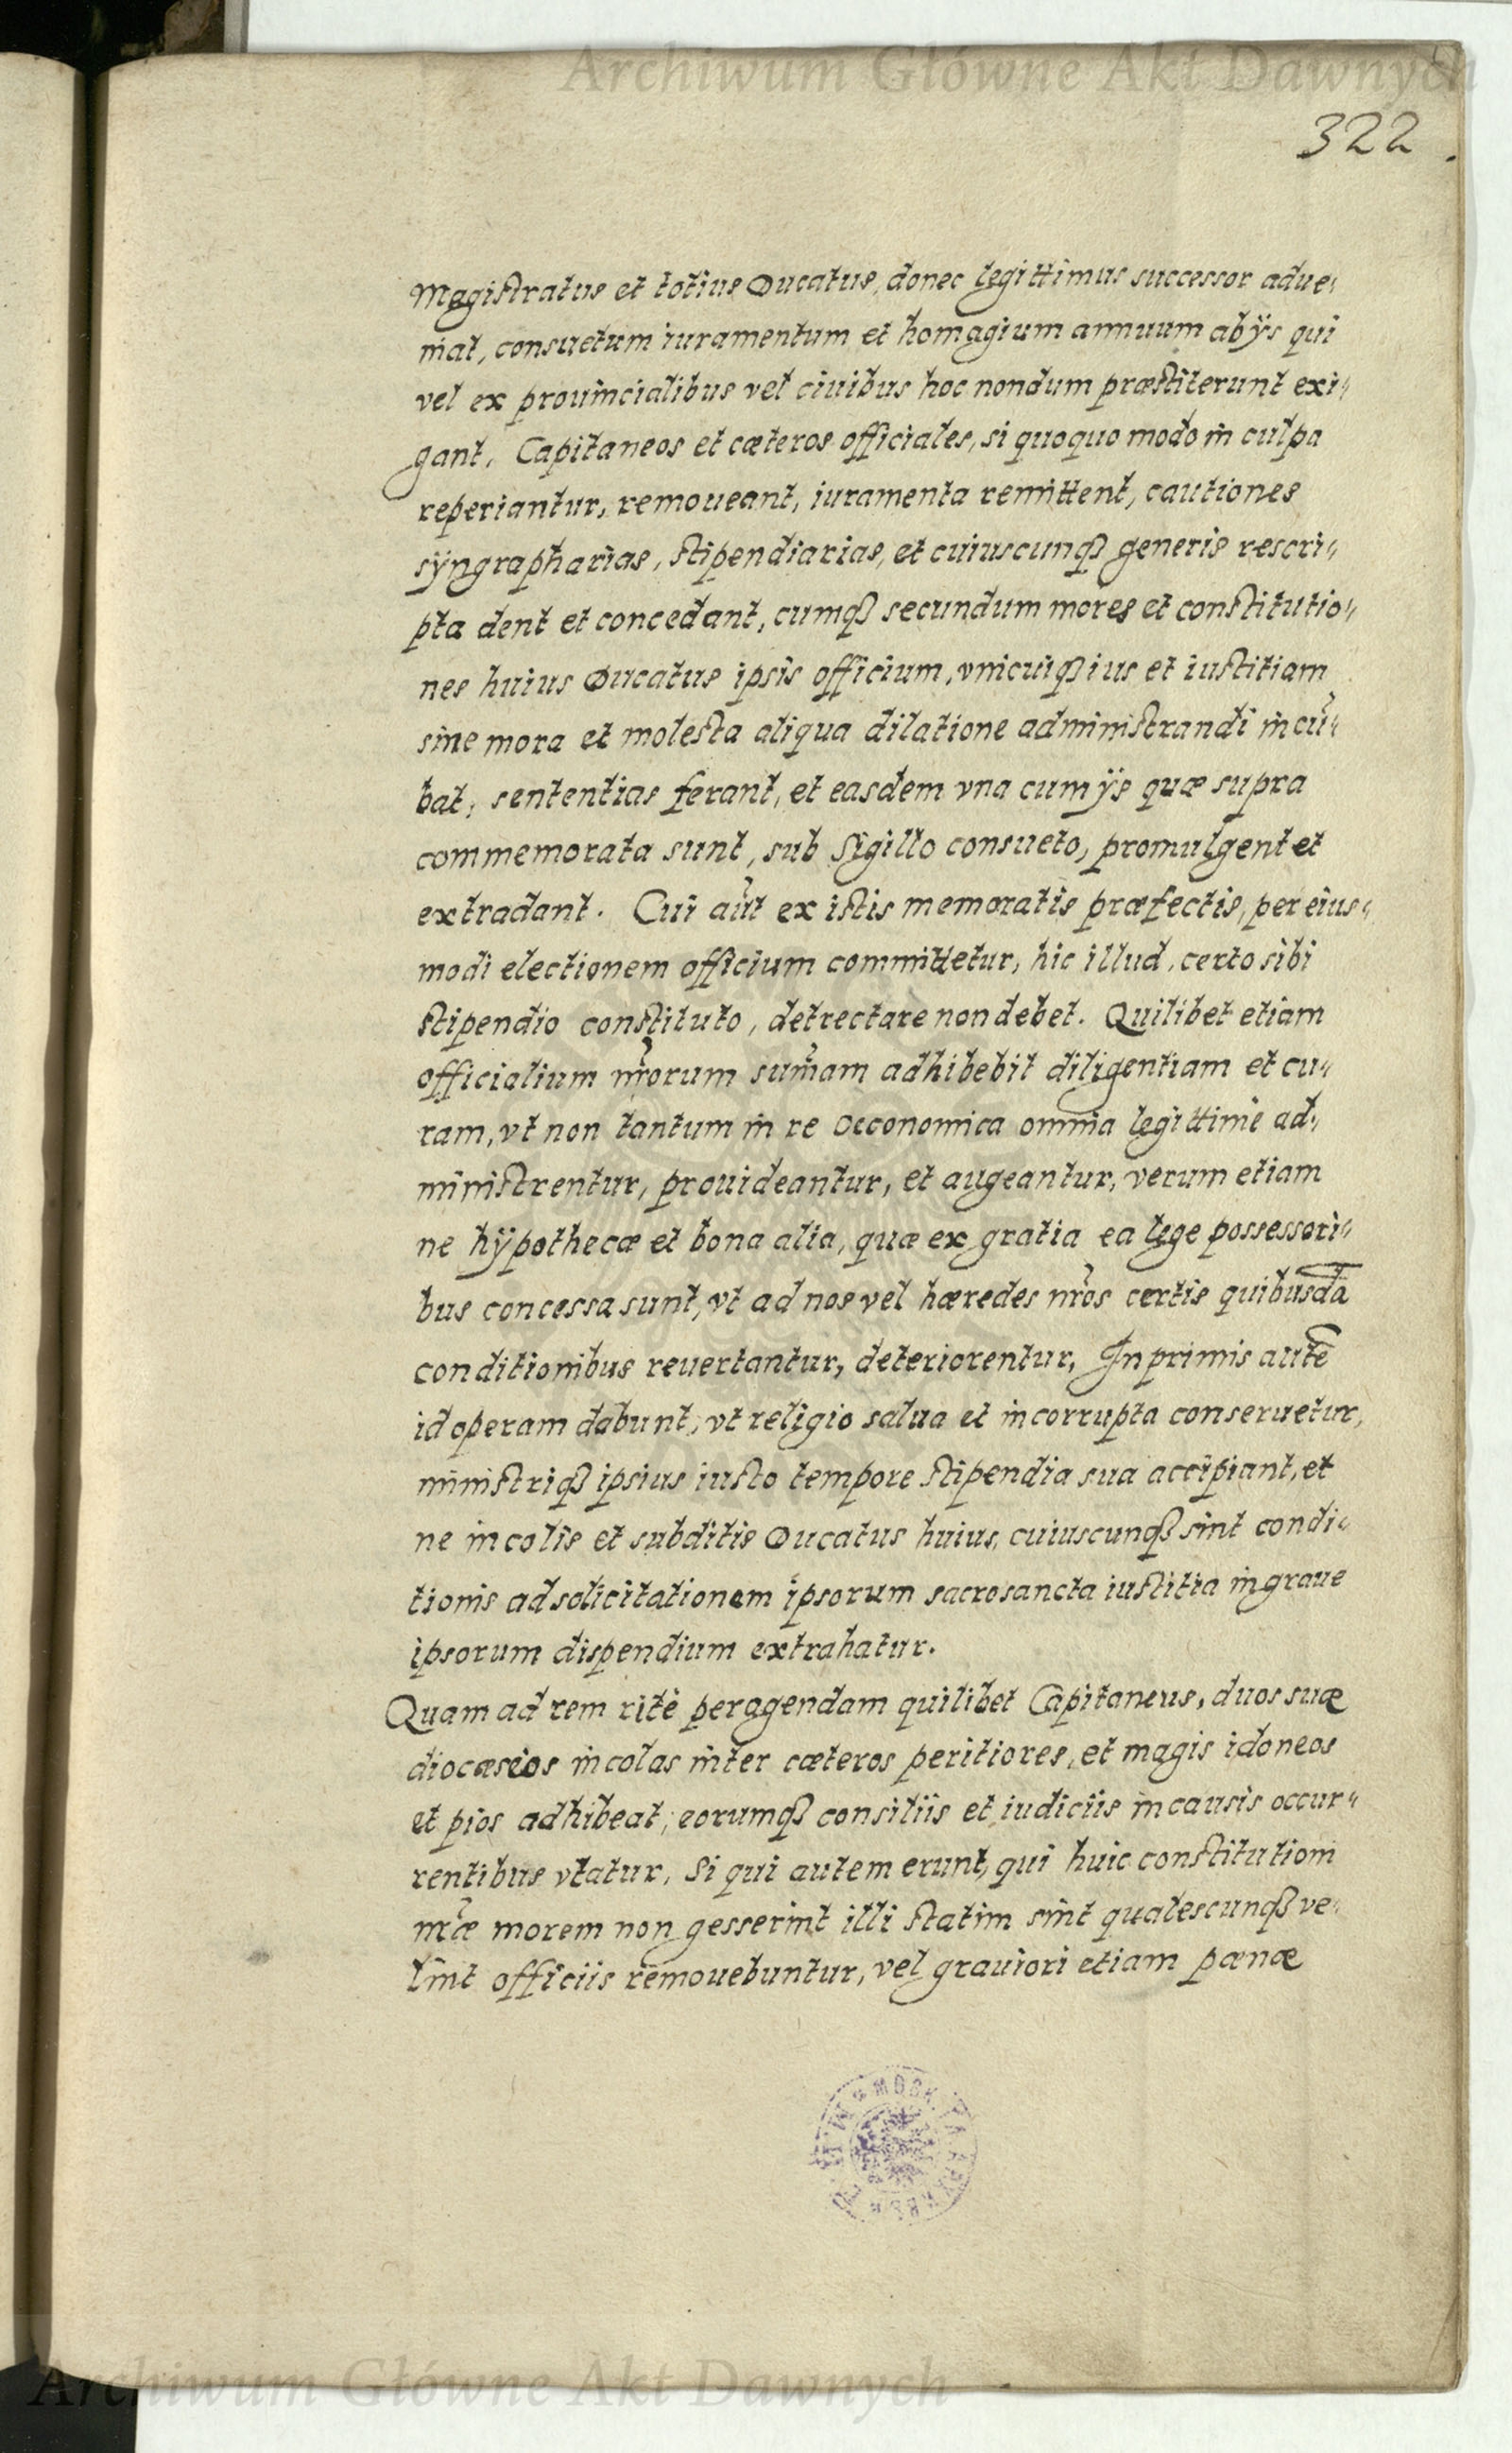 Archiwum Główne Akt Dawnych
322
Magistratus et totius Ducatus, donec legittimus successor adue„
niat, consuetum iuramentum et homagium annuum ab ÿs qui
vel ex prouincialibus vel ciuibus hoc nondum præstiterunt exi„
gant, Capitaneos et cæteros officiales, si quoquo modo in culpa
reperiantur, remoueant, iuramenta remittent, cautiones
sÿngrapharias, stipendiarias, et cuiuscunqꝫ generis rescri„
pta dent et concedant, cumqꝫ secundum mores et constitutio„
nes huius Ducatus ipsis officium, vnicuiqꝫ ius et iustitiam
sine mora et molesta aliqua dilatione administrandi incū„
bat, sententias ferant, et easdem vna cum ÿs quæ supra
commemorata sunt, sub Sigillo consueto, promulgent et
extradant. Cui aūt ex istis memoratis præfectis, per eius„
modi electionem officium committetur, hic illud, certo sibi
stipendio constituto, detrectare non debet. Quilibet etiam
officialium nr̄orum sum̄am adhibebit diligentiam et cu„
ram, vt non tantum in re Oeconomica omnia legittime ad„
ministrentur, prouideantur, et augeantur, verum etiam
ne hÿpothecæ et bona alia, quæ ex gratia ea lege possessori„
bus concessa sunt, vt ad nos vel hæredes nr̄os certis quibusdā
conditionibus reuertantur, deteriorentur, In primis autē
id operam dabunt, vt religio salua et incorrupta conseruetur,
ministriqꝫ ipsius iusto tempore stipendia sua accipiant, et
ne incolis et subditis Ducatus huius, cuiuscunqꝫ sint condi„
tionis ad solicitationem ipsorum sacrosancta iustitia in graue
ipsorum dispendium extrahatur.
Quam ad rem ritè peragendam quilibet Capitaneus, duos suæ
diocæseos incolas inter cæteros peritiores, et magis idoneos
et pios adhibeat, eorumqꝫ consiliis et iudiciis in causis occur„
rentibus vtatur, Si qui autem erunt, qui huic constitutioni
nr̄æ morem non gesserint illi statim sint qualescunqꝫ ve„
lint officiis remouebuntur, vel grauiori etiam pœnæ
Archiwum Główne Akt Dawnych